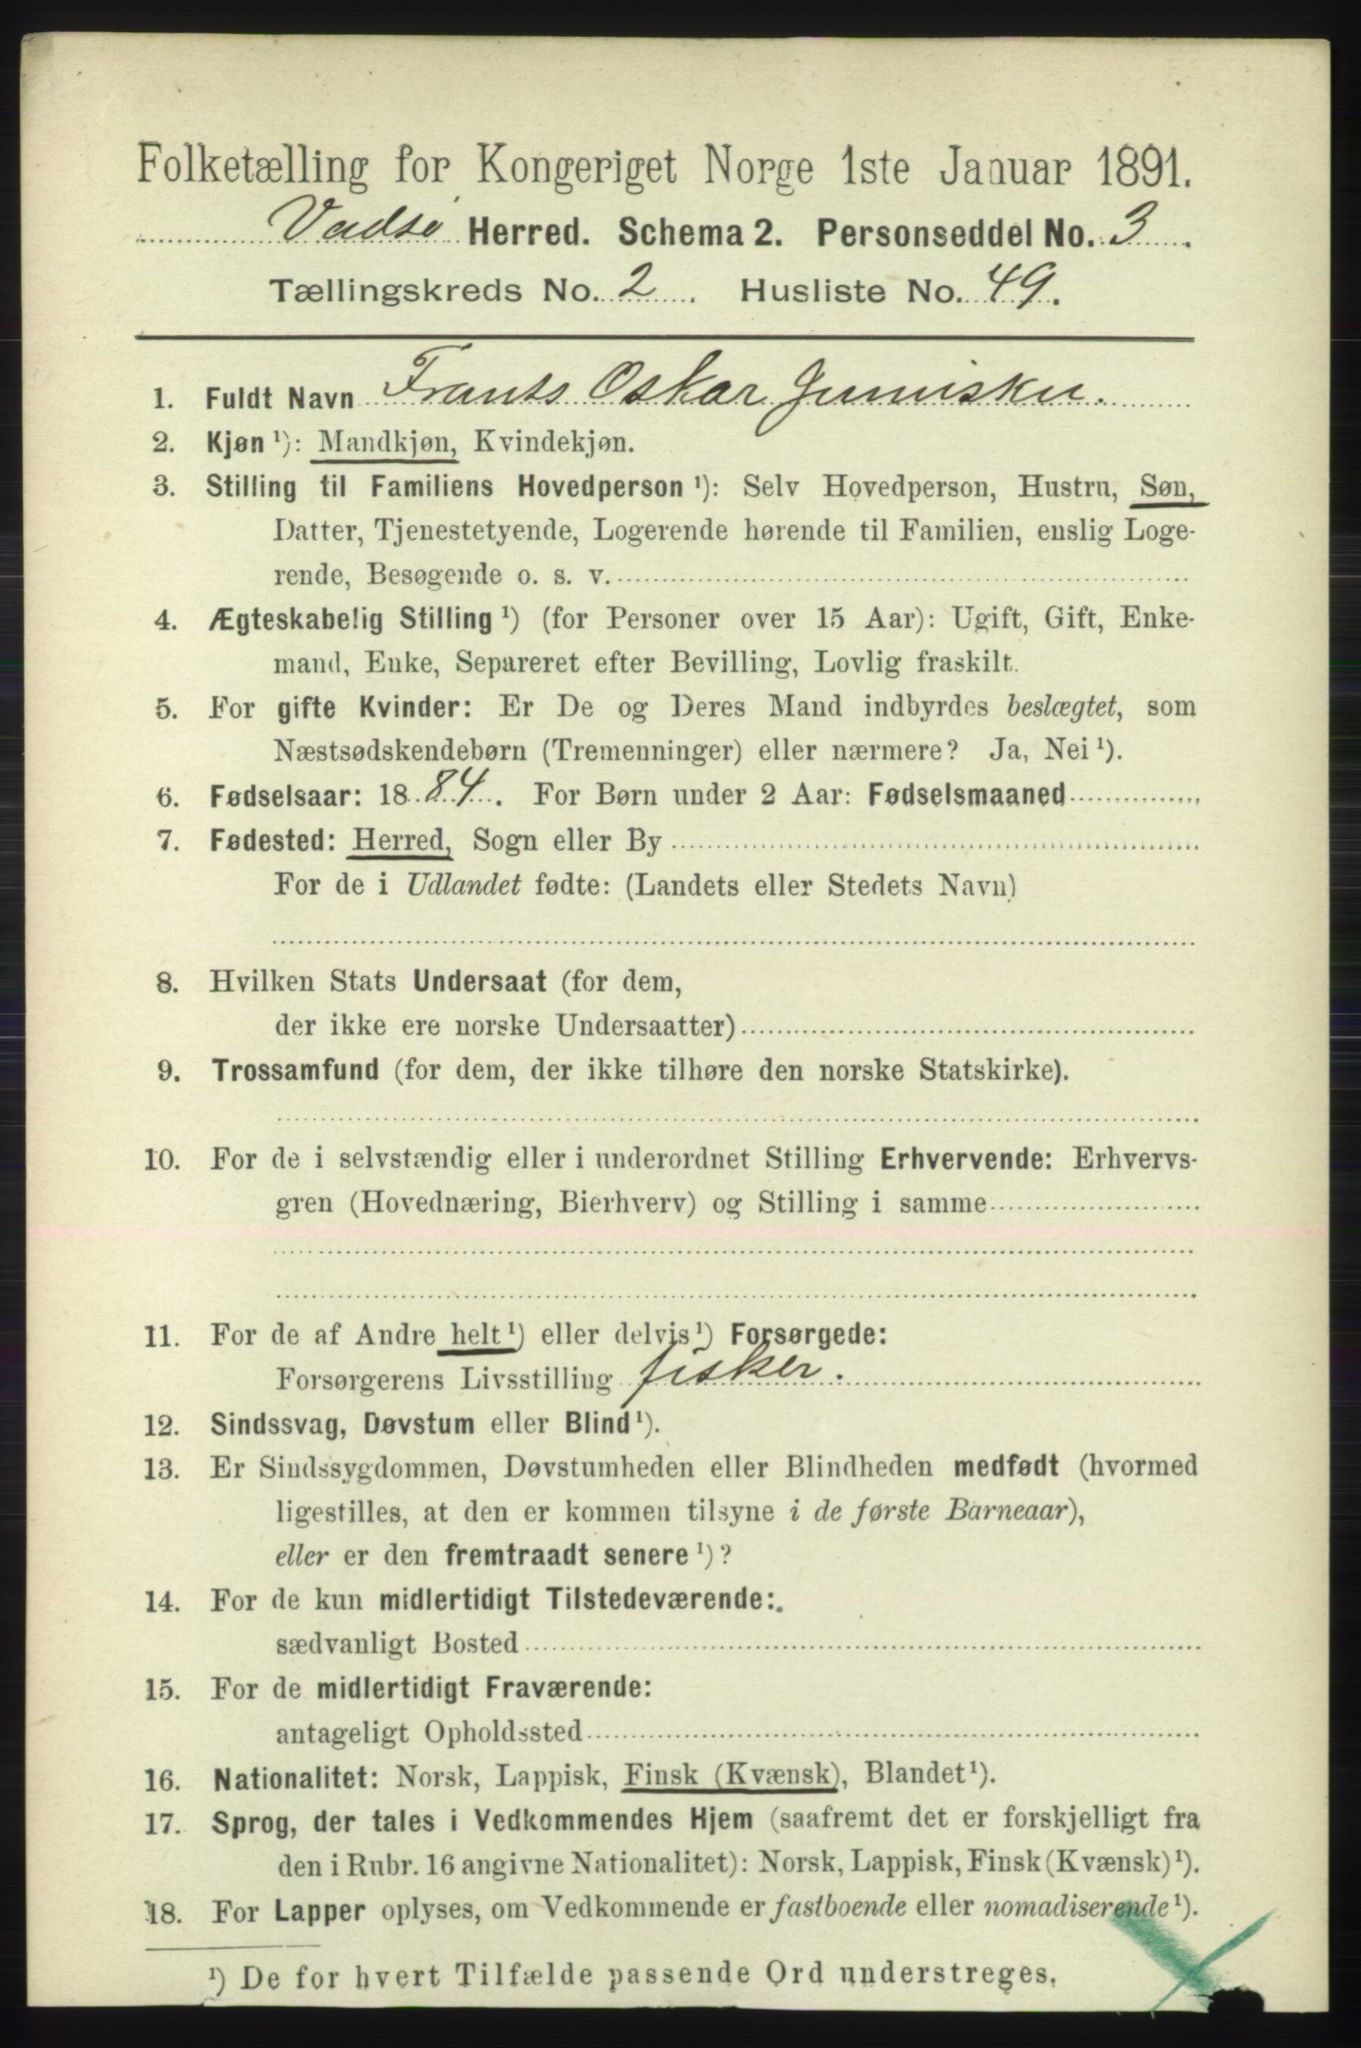 Folketælling for Kongeriget Norge 1ste Januar 1891.
Vadsø Herred. Schema 2. Personseddel No. 3.
Tællingskreds No. 2. Husliste No. 49.
1. Fuldt Navn Frants Oskar
2. Kjøn ¹): Mandkjøn, Kvindekjøn.
3. Stilling til Familiens Hovedperson ¹): Selv Hovedperson, Hustru, Søn,
Datter, Tjenestetyende, Logerende hørende til Familien, enslig Loge-
rende, Besøgende o. s. v.
4. Ægteskabelig Stilling ¹) (for Personer over 15 Aar): Ugift, Gift, Enke-
mand, Enke, Separeret efter Bevilling, Lovlig fraskilt.
5. For gifte Kvinder: Er De og Deres Mand indbyrdes beslægtet, som
Næstsødskendebørn (Tremenninger) eller nærmere? Ja, Nei ¹).
6. Fødselsaar: 1884. For Børn under 2 Aar: Fødselsmaaned
7. Fødested: Herred, Sogn eller By
For de i Udlandet fødte: (Landets eller Stedets Navn)
8. Hvilken Stats Undersaat (for dem,
der ikke ere norske Undersaatter)
9. Trossamfund (for dem, der ikke tilhøre den norske Statskirke).
10. For de i selvstændig eller i underordnet Stilling Erhvervende: Erhvervs-
gren (Hovednæring, Bierhverv) og Stilling i samme
11. For de af Andre helt ¹) eller delvis ¹) Forsørgede:
Forsørgerens Livsstilling fisker.
12. Sindssvag, Døvstum eller Blind ¹).
13. Er Sindssygdommen, Døvstumheden eller Blindheden medfødt (hvormed
ligestilles, at den er kommen tilsyne i de første Barneaar),
eller er den fremtraadt senere ¹)?
14. For de kun midlertidigt Tilstedeværende:
sædvanligt Bosted
15. For de midlertidigt Fraværende:
antageligt Opholdssted
16. Nationalitet: Norsk, Lappisk, Finsk (Kvænsk), Blandet ¹).
17. Sprog, der tales i Vedkommendes Hjem (saafremt det er forskjelligt fra
den i Rubr. 16 angivne Nationalitet): Norsk, Lappisk, Finsk (Kvænsk) ¹).
18. For Lapper oplyses, om Vedkommende er fastboende eller nomadiserende ¹).
¹) De for hvert Tilfælde passende Ord understreges.